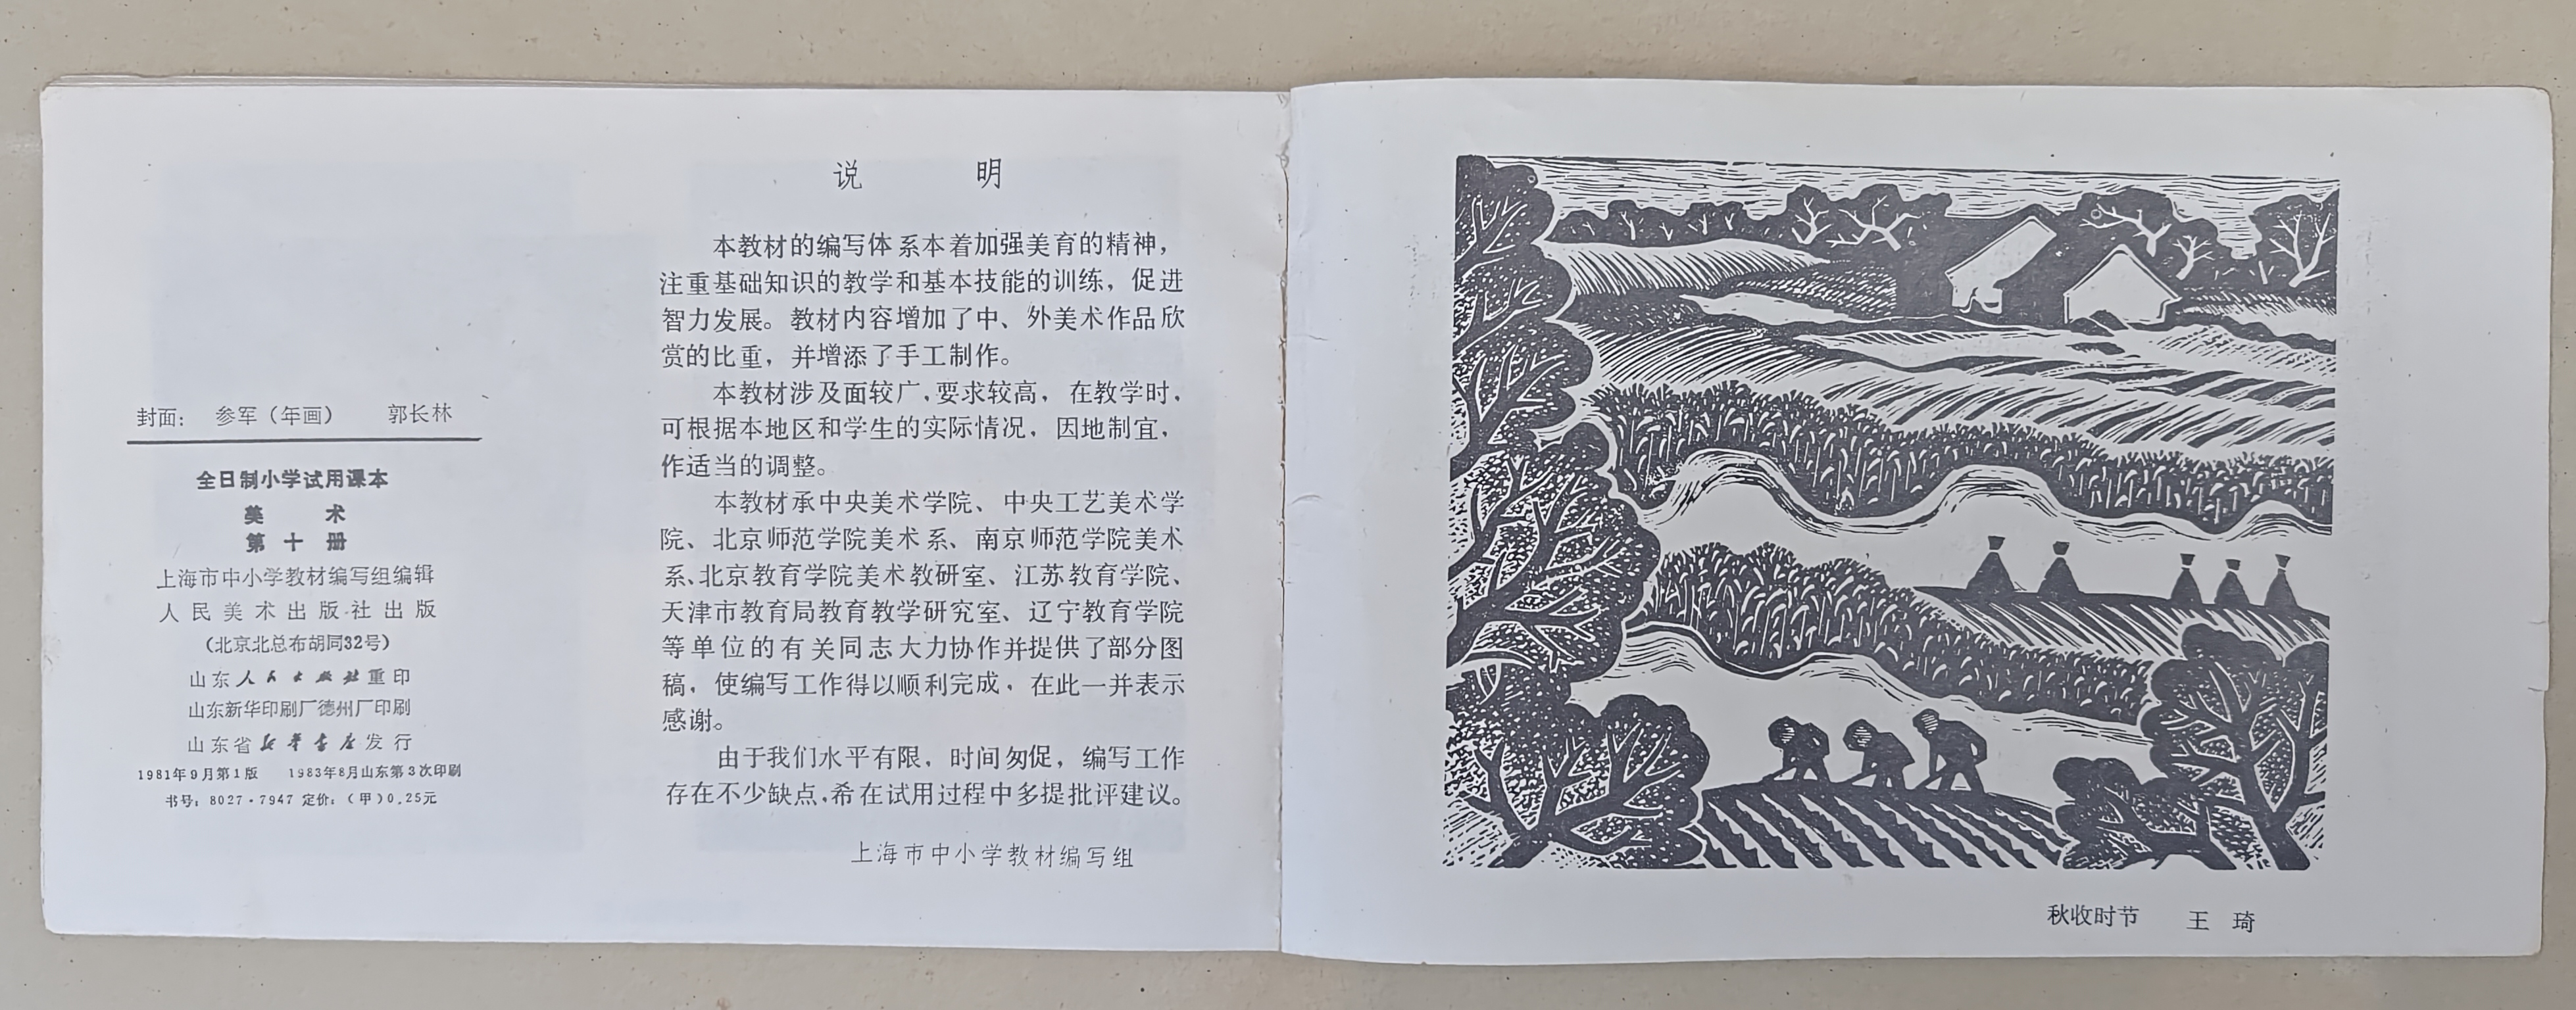 封面： 参军（年画） 郭长林
全日制小学试用课本
美 术
第 十 册
上海市中小学教材编写组编辑
人民美术出版社出版
（北京北总布胡同32号）
山东人民出版社重印
山东新华印刷厂德州厂印刷
山东省新华书店发行
1981年9月第1版 1983年8月山东第3次印刷
书号：8027·7947 定价：（甲）0.25元
说 明
本教材的编写体系本着加强美育的精神，
注重基础知识的教学和基本技能的训练，促进
智力发展。教材内容增加了中、外美术作品欣
赏的比重，并增添了手工制作。
本教材涉及面较广，要求较高，在教学时，
可根据本地区和学生的实际情况，因地制宜，
作适当的调整。
本教材承中央美术学院、中央工艺美术学
院、北京师范学院美术系、南京师范学院美术
系、北京教育学院美术教研室、江苏教育学院、
天津市教育局教育教学研究室、辽宁教育学院
等单位的有关同志大力协作并提供了部分图
稿，使编写工作得以顺利完成，在此一并表示
感谢。
由于我们水平有限，时间匆促，编写工作
存在不少缺点，希在试用过程中多提批评建议。
上海市中小学教材编写组
秋收时节 王 琦